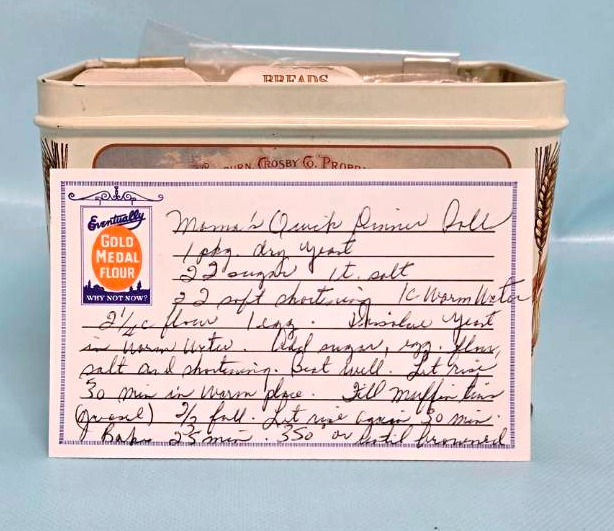 BREADS
BURN, CROSBY CO. PROPR
Eventually
GOLD
MEDAL
FLOUR
WHY NOT NOW?
Mama's Quick Dinner Roll
1 pkg. dry yeast
2 sugar 1 t. salt
2 soft shortening 1c Warm Water
2 1/4 c flour 1 egg. Dissolve yeast
in warm water Add sugar, egg, flour,
salt and shortening. Beat well. Let rise
30 min in warm place. Fill muffin tins
(greased) 2/3 full. Let rise again 30 min.
Bake 25 min. 350° or until browned